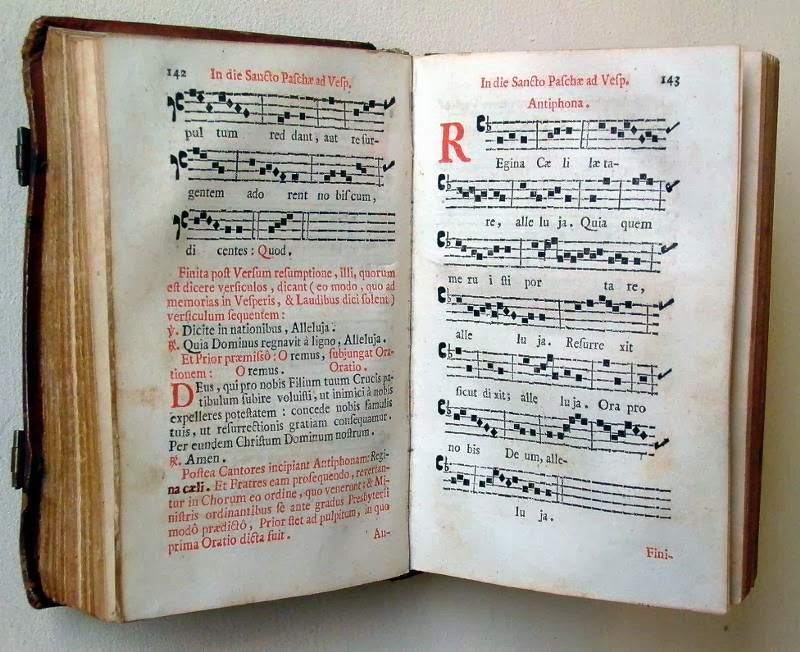 142 In die Sancto Paſchæ ad Veſp.
pul tum red dant, aut reſur-
gentem ado rent no biſcum,
di centes: Quod.
Finita poſt Verſum reſumptione, illi, quorum
eſt dicere verſiculos, dicant (eo modo, quo ad
memorias in Veſperis, & Laudibus dici ſolent)
verſiculum ſequentem:
℣. Dicite in nationibus, Alleluja.
℟. Quia Dominus regnavit à ligno, Alleluja.
Et Prior præmiſſô: O remus, ſubjungat Ora-
tionem: O remus. Oratio.
DEus, qui pro nobis Filium tuum Crucis pa-
tibulum ſubire voluiſti, ut inimici à nobis
expelleres poteſtatem: concede nobis famulis
tuis, ut reſurrectionis gratiam conſequamur.
Per eundem Chriſtum Dominum noſtrum.
℟. Amen.
Poſtea Cantores incipiant Antiphonam: Regi-
na cæli. Et Fratres eam proſequendo, revertan-
tur in Chorum eo ordine, quo venerunt: & Mi-
niſtris ordinantibus ſe ante gradus Presbyterii
modô prædictô, Prior ſtet ad pulpitum, in quo
prima Oratio dicta fuit.
An-
In die Sancto Paſchæ ad Veſp. 143
Antiphona.
REgina Cæ li læ ta-
re, alle lu ja. Quia quem
me ru i ſti por ta re,
alle lu ja. Reſurre xit
ſicut dixit; alle luja. Ora pro
no bis De um, alle-
lu ja.
Fini-